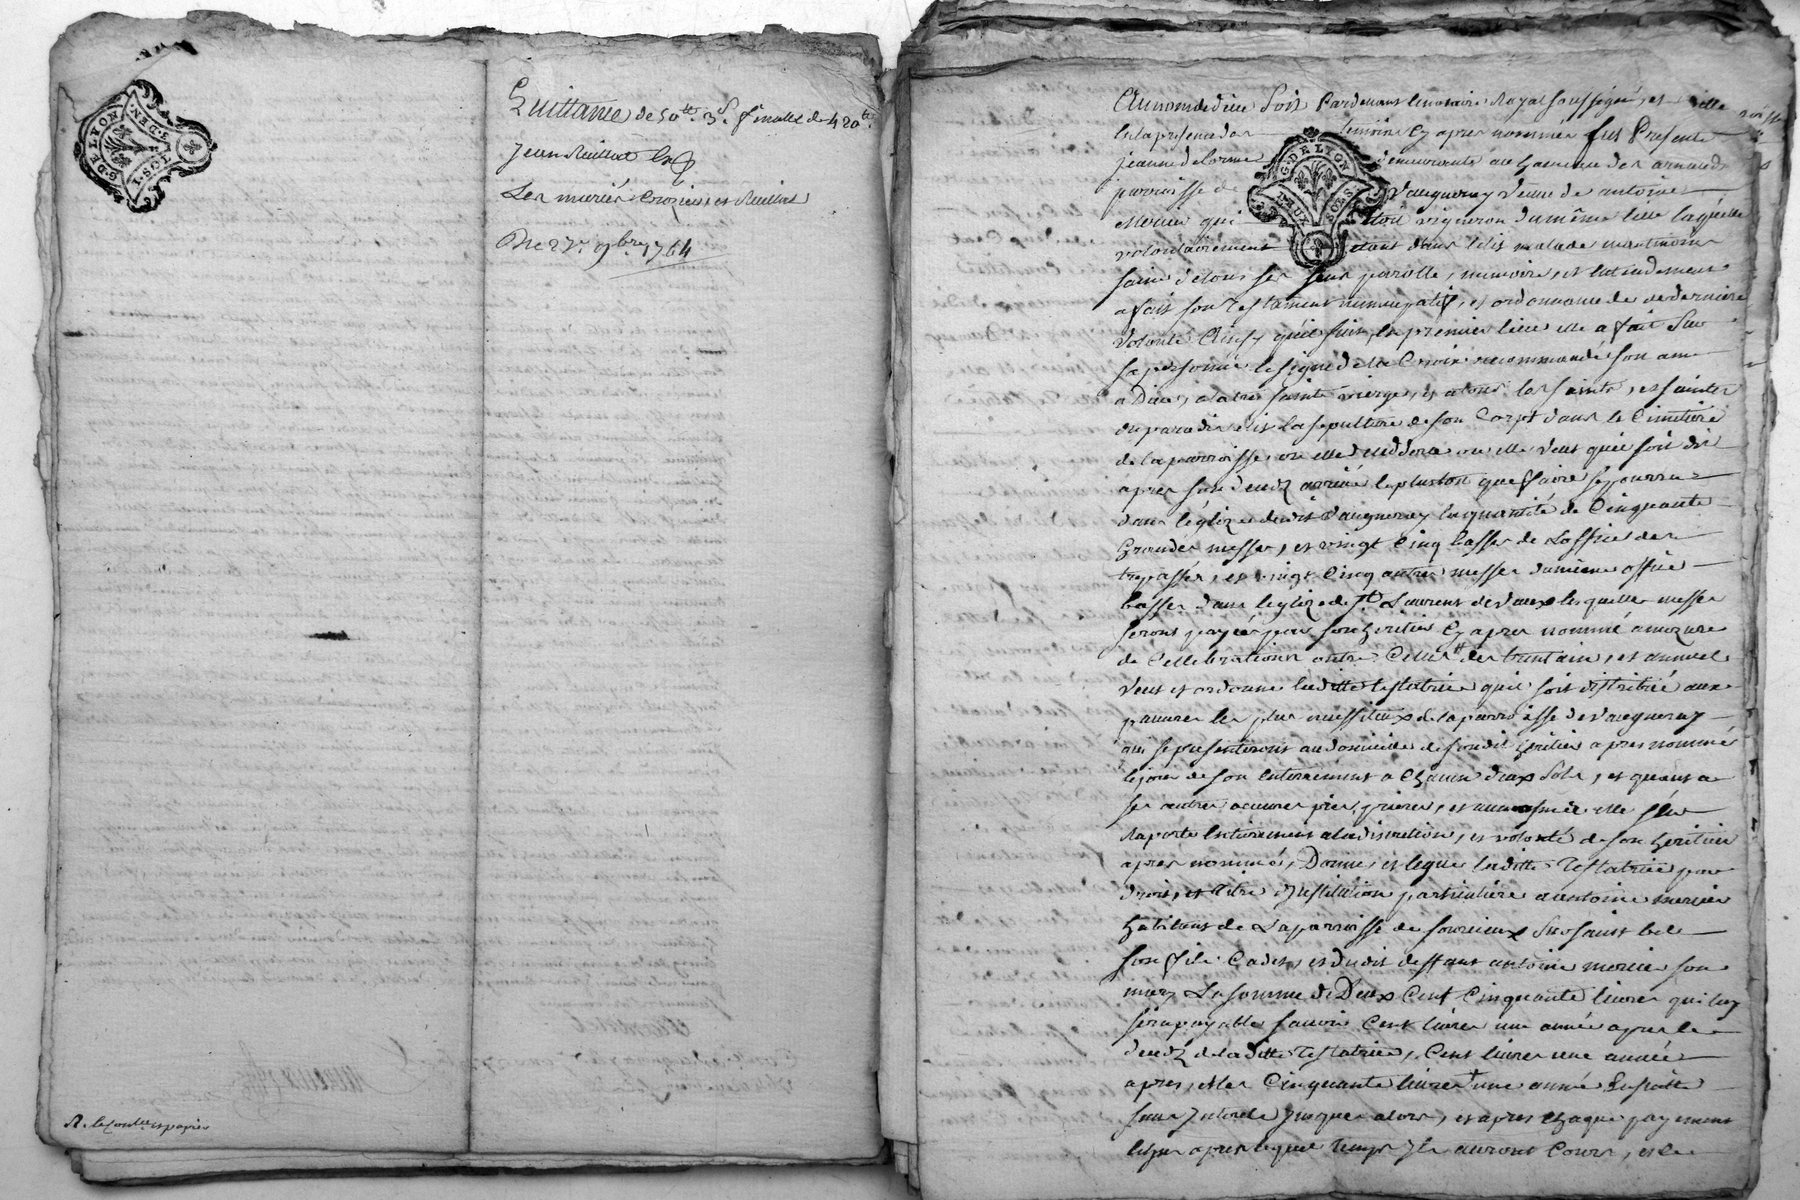 G. DE LYON
I. SOL
DEN.
Quittance de 50 tt. 3 s. f. malle de 420 tt.
Jean Ruillat
Les mariés Crozier et Ruillat
Du 27e 9bre 1764
R. le Conlle et papier
G. DE LYON
DEUX SOLS
Au nom de dieu soit Pardevant le notaire Royal soussigné, et
En la presence des temoins Cy apres nommés fut Presente
jeanne delorme demeurante au hameau des arnauds
parroisse de Vaugneray Veuve de antoine
Mercier qui vigneron du même lieu laquelle
volontairement etant dans lelit malade neantmoins
saine detous ses sens parolle, memoire, et Entendement
a fait son Testament nuncupatif, et ordonnance de derniere
Volonté Ainsy quil suit, En premier lieu elle a fait Sur
sa personne le signe de la Croix recommandé son ame
a Dieu, ala tres sainte vierge, et atous les saints, et saintes
du paradis elit la sepulture de son Corps dans le Cimetiere
de la parroisse ou elle deceddera ou elle Veut quil soit dit
apres son decedz arrivé leplustot que faire se pourra
dans léglize dudit Vaugneray la quantité de Cinquante
Grandes messes, et vingt Cinq basses de Loffice des
trepassés, et vingt Cinq autres messes du meme office
basses dans leglize de St. Laurent de Vaux lesquelles messes
seront payées par son heritier Cy apres nommé amezure
de Cellebrations outre Celles des trentain, et annuel
Veut et ordonne laditte testatrice quil soit distribué aux
pauvres les plus necessiteux de la parroisse de Vaugneray
qui se presenteront au domicille de son dit heritier apres nommé
le jour de son Enterrement a Chacun deux Sols, et quant a
ses autres oeuvres pies, prieres, et aumosnes elle s'en
Raporte Entierement ala discretion, et volonté de son heritier
apres nommé, Donne, et legue laditte Testatrice par
droit, et titre d'Institution particuliere a antoine mercier
habitant de La parroisse de sourcieux Sur saint bel
son fils Cadet, et dudit deffunt antoine mercier son
mary La somme de Deux Cent Cinquante livres qui luy
sera payable savoir Cent livres une année apres le
decedz de laditte Testatrice, Cent livres une année
apres, et les Cinquante livres une année Ensuitte
sans Interets Jusques alors, et apres Chaque payement
Echu apres lequel temps Ils auront Cours, et le